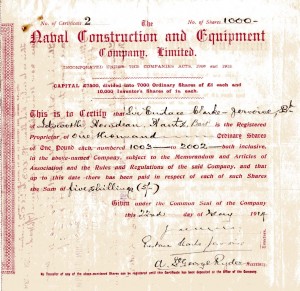 No. of Certificate 2 The No. of Shares 1000-
Naval Construction and Equipment
Company, Limited.
INCORPORATED UNDER THE COMPANIES ACTS,
CAPITAL £7500, divided into 7000 Ordinary Shares of £1 each and
10,000 Investor's Shares of 1s. each.
This is to Certify that Sir Eustace Clarke-Jervoise, Bt
of Idsworth Horndean Hants, is the Registered
Proprietor of One thousand Ordinary Shares
of One pound each, numbered 1003 to 2002 both inclusive,
in the above-named Company, subject to the Memorandum and Articles of
Association and the Rules and Regulations of the said Company, and that
up to this date there has been paid in respect of each of such Shares
the Sum of five shillings (5/-)
Given under the Common Seal of the Company
this day of 191
A. St George Ryder Secretary.
No Transfer of any of the above-mentioned Shares can be registered until this Certificate has been deposited at the Office of the Company.